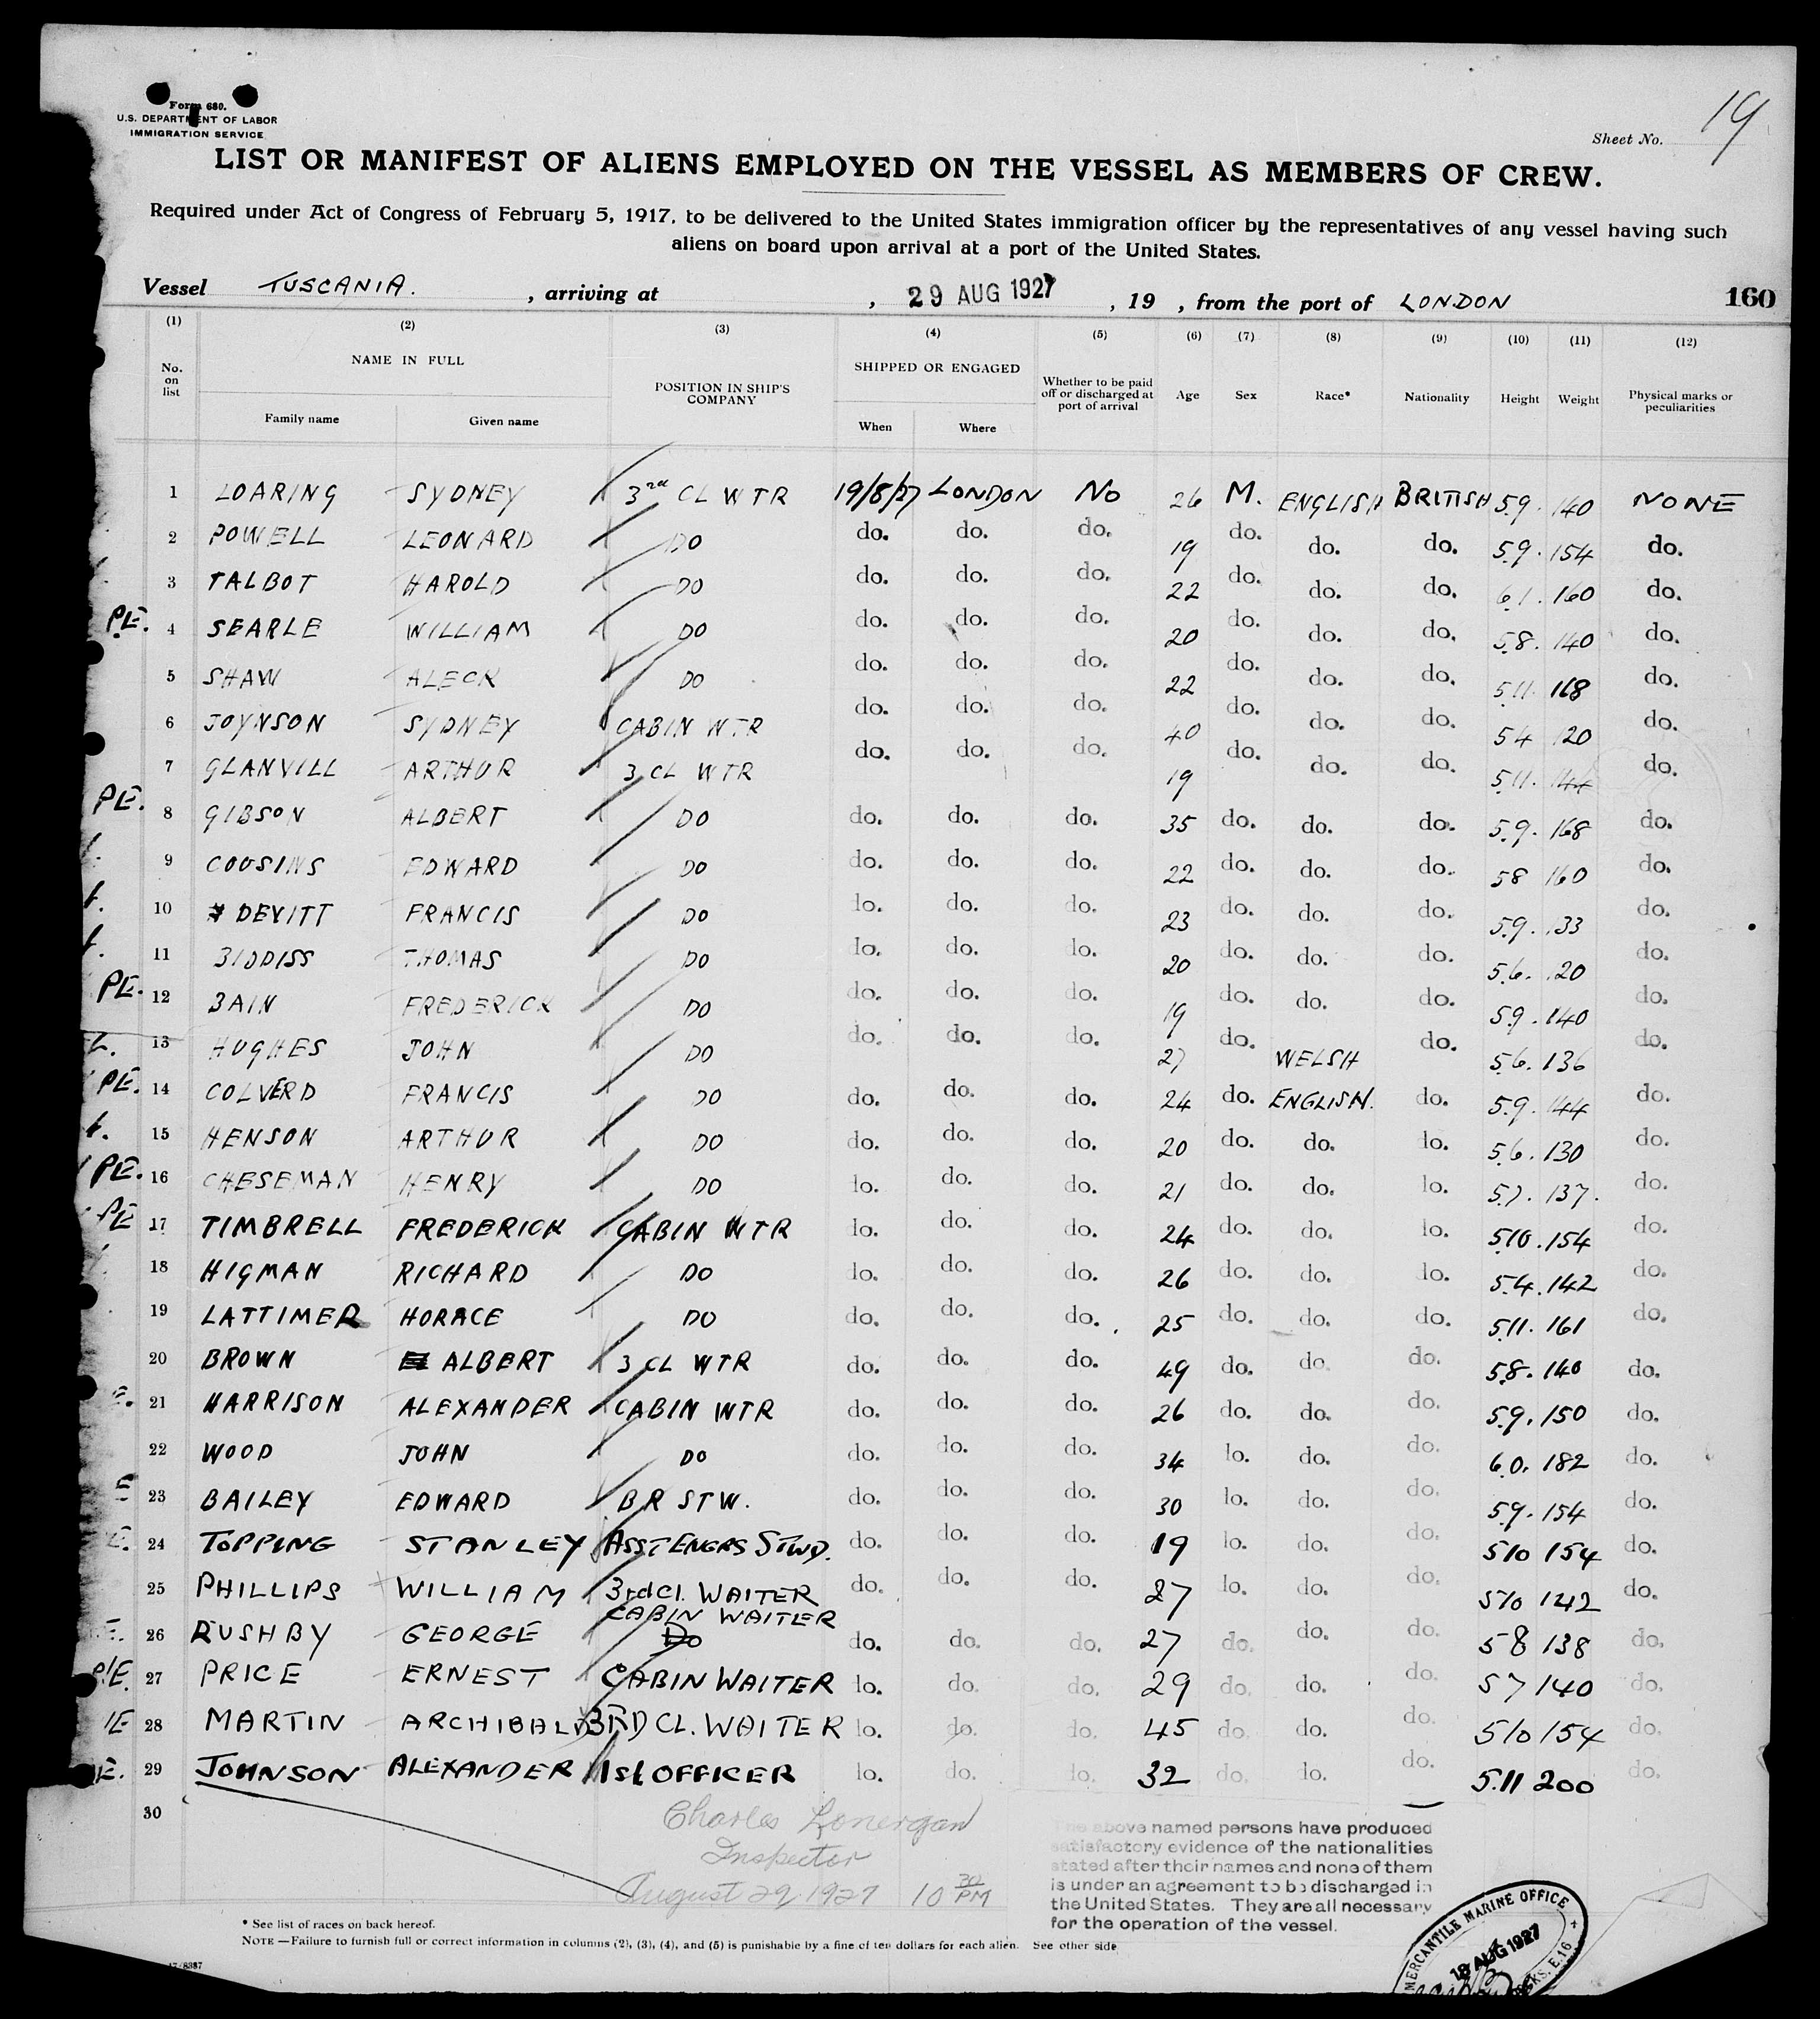 Form 680.
U.S. DEPARTMENT OF LABOR
IMMIGRATION SERVICE
Sheet No. 19
LIST OR MANIFEST OF ALIENS EMPLOYED ON THE VESSEL AS MEMBERS OF CREW.
Required under Act of Congress of February 5, 1917, to be delivered to the United States immigration officer by the representatives of any vessel having such
aliens on board upon arrival at a port of the United States.
Vessel TUSCANIA. , arriving at , 29 AUG 1927 , 19 , from the port of LONDON 160
(1) (2) (3) (4) (5) (6) (7) (8) (9) (10) (11) (12)
No. on list NAME IN FULL POSITION IN SHIP'S COMPANY SHIPPED OR ENGAGED Whether to be paid off or discharged at port of arrival Age Sex Race* Nationality Height Weight Physical marks or peculiarities
Family name Given name When Where
1 LOARING SYDNEY 3rd CL WTR 19/8/27 LONDON NO 26 M. ENGLISH BRITISH 5.9. 140 NONE
2 POWELL LEONARD DO do. do. do. 19 do. do. do. 5.9. 154 do.
3 TALBOT HAROLD DO do. do. do. 22 do. do. do. 6.1. 160 do.
PE. 4 SEARLE WILLIAM DO do. do. do. 20 do. do. do. 5.8. 140 do.
5 SHAW ALECK DO do. do. do. 22 do. do. do. 5.11. 168 do.
6 JOYNSON SYDNEY CABIN WTR do. do. do. 40 do. do. do. 5 4 120 do.
7 GLANVILL ARTHUR 3 CL WTR do. do. do. 19 do. do. do. 5.11. 144 do.
PE. 8 GIBSON ALBERT DO do. do. do. 35 do. do. do. 5.9. 168 do.
9 COUSINS EDWARD DO do. do. do. 22 do. do. do. 58 160 do.
10 DEVITT FRANCIS DO do. do. do. 23 do. do. do. 5.9. 133 do.
11 BIDDISS THOMAS DO do. do. do. 20 do. do. do. 5.6. 120 do.
PE. 12 BAIN FREDERICK DO do. do. do. 19 do. do. do. 5.9. 140 do.
13 HUGHES JOHN DO do. do. do. 27 do. WELSH do. 5.6. 136 do.
PE. 14 COLVERD FRANCIS DO do. do. do. 24 do. ENGLISH. do. 5.9. 144 do.
15 HENSON ARTHUR DO do. do. do. 20 do. do. do. 5.6. 130 do.
PE. 16 CHESEMAN HENRY DO do. do. do. 21 do. do. do. 5.7. 137. do.
PE 17 TIMBRELL FREDERICK CABIN WTR do. do. do. 24 do. do. do. 5.10. 154 do.
18 HIGMAN RICHARD DO do. do. do. 26 do. do. do. 5.4. 142 do.
19 LATTIMER HORACE DO do. do. do. 25 do. do. do. 5.11. 161 do.
20 BROWN ALBERT 3 CL WTR do. do. do. 49 do. do. do. 5.8. 140 do.
E. 21 HARRISON ALEXANDER CABIN WTR do. do. do. 26 do. do. do. 5.9. 150 do.
22 WOOD JOHN DO do. do. do. 34 do. do. do. 6.0. 182 do.
E 23 BAILEY EDWARD BR STW. do. do. do. 30 do. do. do. 5.9. 154 do.
E. 24 TOPPING STANLEY ASST ENGRS STWD. do. do. do. 19 do. do. do. 5 10 154 do.
25 PHILLIPS WILLIAM 3rd Cl. WAITER do. do. do. 27 do. do. do. 5 10 142 do.
CABIN WAITER
E. 26 RUSHBY GEORGE Do do. do. do. 27 do. do. do. 5 8 138 do.
P/E. 27 PRICE ERNEST CABIN WAITER do. do. do. 29 do. do. do. 5 7 140 do.
/E 28 MARTIN ARCHIBALD 3RD CL. WAITER do. do. do. 45 do. do. do. 5 10 154 do.
E. 29 JOHNSON ALEXANDER 1st OFFICER do. do. do. 32 do. do. do. 5.11 200 do.
30
Charles Lonergan
Inspector
August 29, 1927 10 30 PM
The above named persons have produced
satisfactory evidence of the nationalities
stated after their names and none of them
is under an agreement to be discharged in
the United States. They are all necessary
for the operation of the vessel.
* See list of races on back hereof.
NOTE.—Failure to furnish full or correct information in columns (2), (3), (4), and (5) is punishable by a fine of ten dollars for each alien. See other side
17-8387
MERCANTILE MARINE OFFICE
18 AUG 1927
DOCKS. E.16